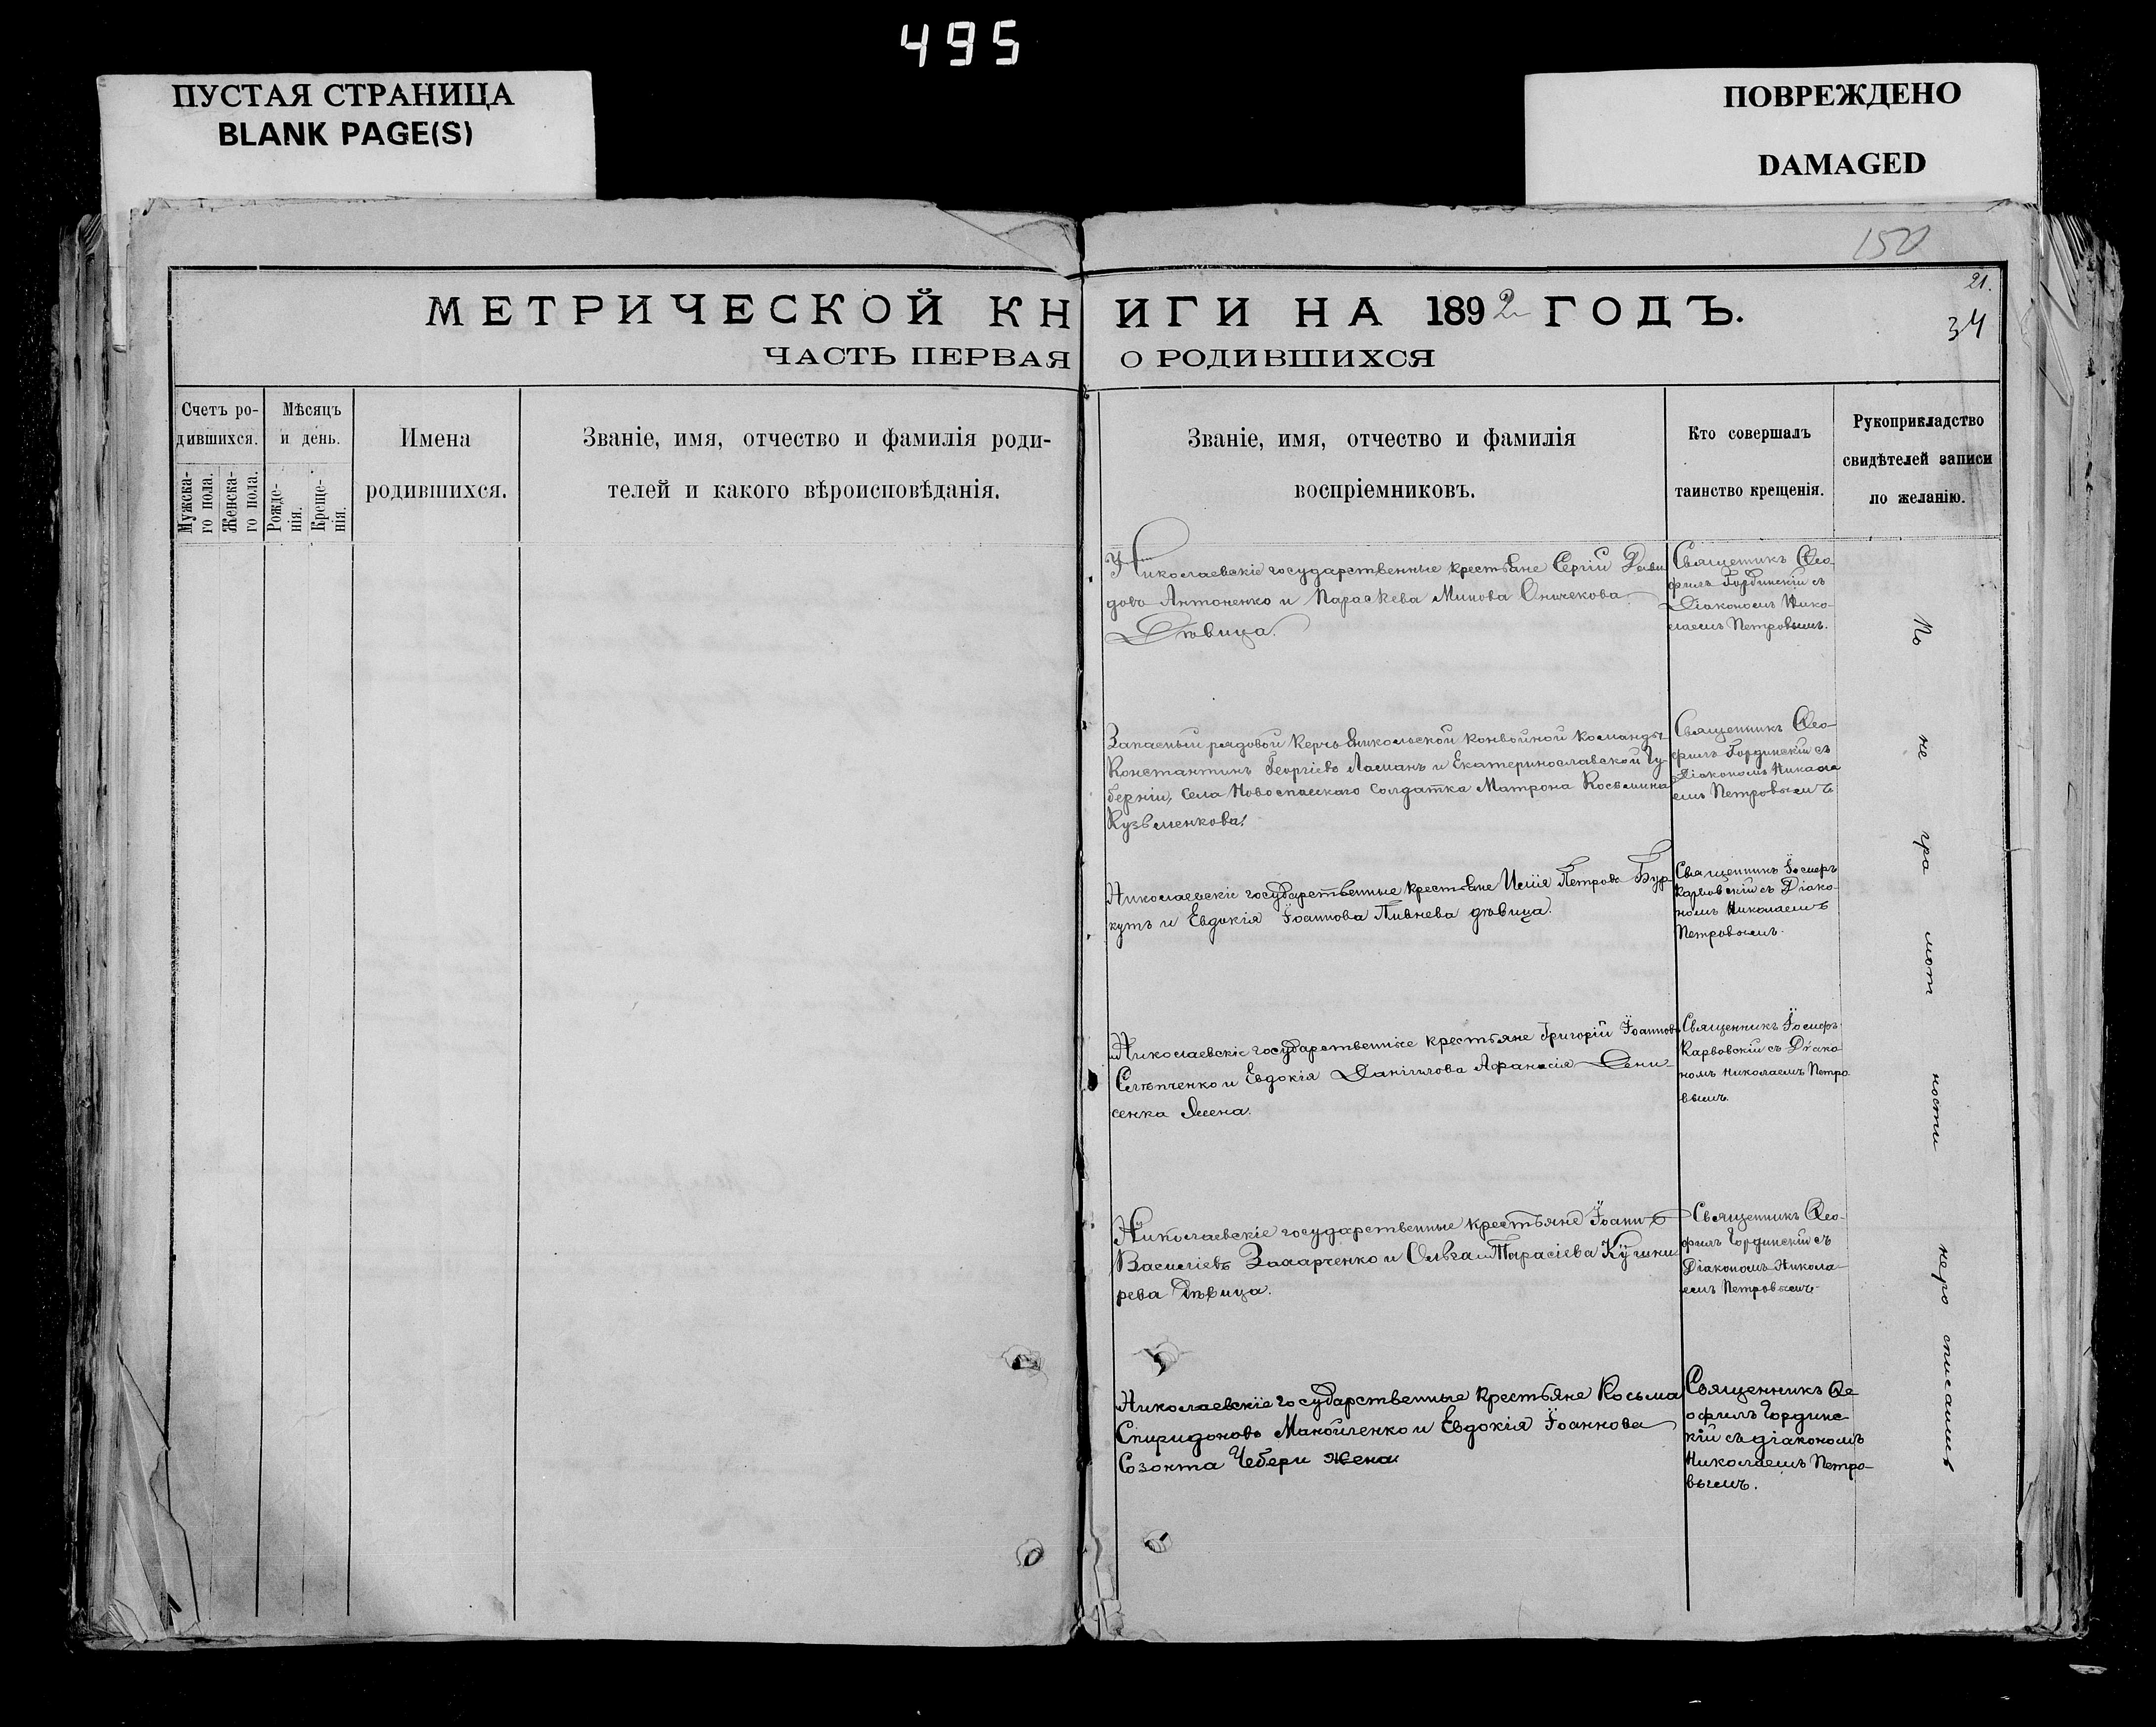 495
ПУСТАЯ СТРАНИЦА
BLANK PAGE(S)
ПОВРЕЖДЕНО
DAMAGED
150
21.
34
МЕТРИЧЕСКОЙ КНИГИ НА 1892 ГОДЪ.
ЧАСТЬ ПЕРВАЯ О РОДИВШИХСЯ
Счетъ ро-
дившихся.
Мужска-
го пола.
Женска-
го пола.
Мѣсяцъ
и день.
Рожде-
нія.
Креще-
нія.
Имена
родившихся.
Званіе, имя, отчество и фамилія роди-
телей и какого вѣроисповѣданія.
Званіе, имя, отчество и фамилія
воспріемниковъ.
Кто совершалъ
таинство крещенія.
Рукоприкладство
свидѣтелей записи
по желанію.
Николаевскіе государственные крестьяне Сергій Дави
довъ Антоненко и Параскева Минова
Дѣвица.
Священикъ Ѳео-
филъ Гординскій съ
Діакономъ Нико-
лаемъ Петровымъ.
Запасный рядовой Керчь Еникольской конвойной команды
Константинъ Георгіевъ Ласманъ и Екатеринославской Гу-
берніи, села Новоспасскаго солдатка Матрона Косьмина
Кузьменкова.
Священникъ Ѳео-
филъ Гординскій съ
Діакономъ Никола
емъ Петровымъ
Николаевскіе государственные крестьяне Илія Петровъ Бур-
кутъ и Евдокія Іоаннова Пивнева дѣвица.
Священникъ Іосифъ
Карвовскій съ Діако-
номъ Николаемъ
Петровымъ.
Николаевскіе государственные крестьяне Григорій Іоанновъ
Слѣпченко и Евдокія Даніилова Афанасія Дени-
сенка жена.
Священникъ Іосифъ
Карвовскій съ Діако
номъ Николаемъ Петро
вымъ.
Николаевскіе государственные крестьяне Іоаннъ
Василіевъ Захарченко и Ольга Тарасіева Кучми-
рева Дѣвица.
Священникъ Ѳео-
филъ Гординскій съ
Діакономъ Никола-
емъ Петровымъ.
Николаевскіе государственные крестьяне Косьма
Спиридоновъ Манойленко и Евдокія Іоаннова
Созонта Чебери жена
Священникъ Ѳе
офилъ Гординс-
кій съ діакономъ
Николаемъ Петро-
вымъ.
По не гра мот ности неро списались